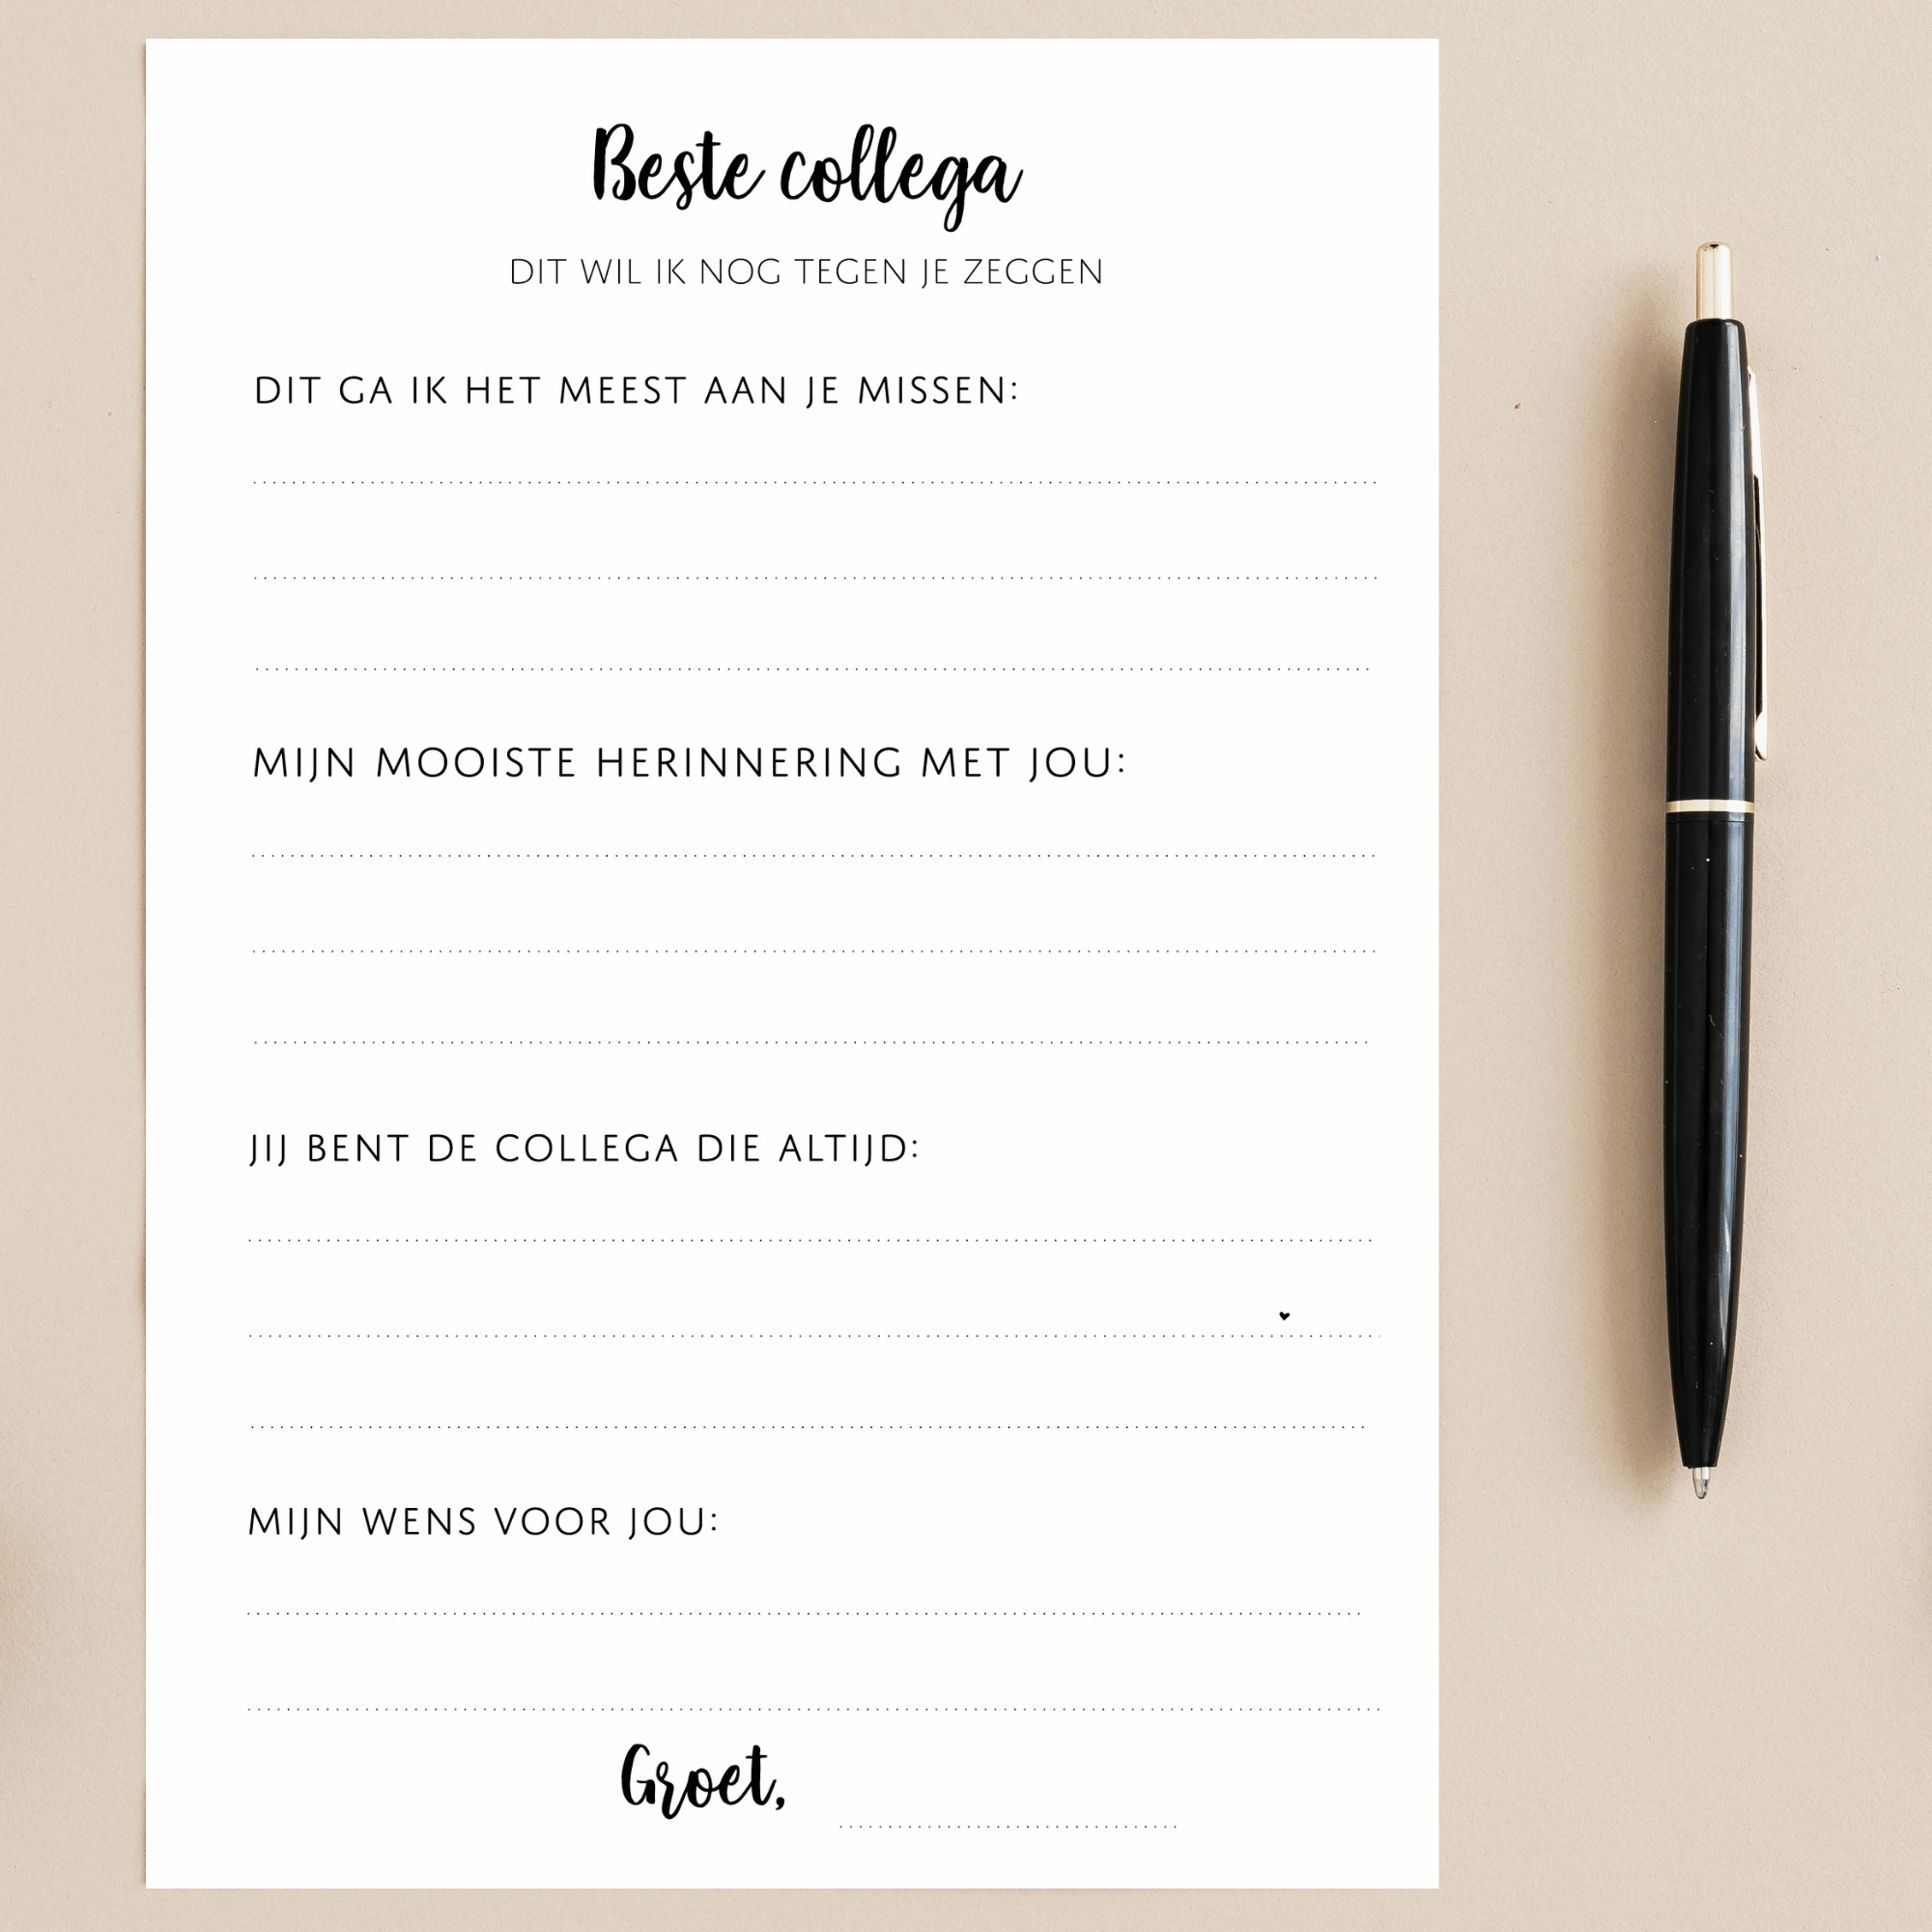 Beste collega
DIT WIL IK NOG TEGEN JE ZEGGEN
DIT GA IK HET MEEST AAN JE MISSEN:
MIJN MOOISTE HERINNERING MET JOU:
JIJ BENT DE COLLEGA DIE ALTIJD:
MIJN WENS VOOR JOU:
Groet,